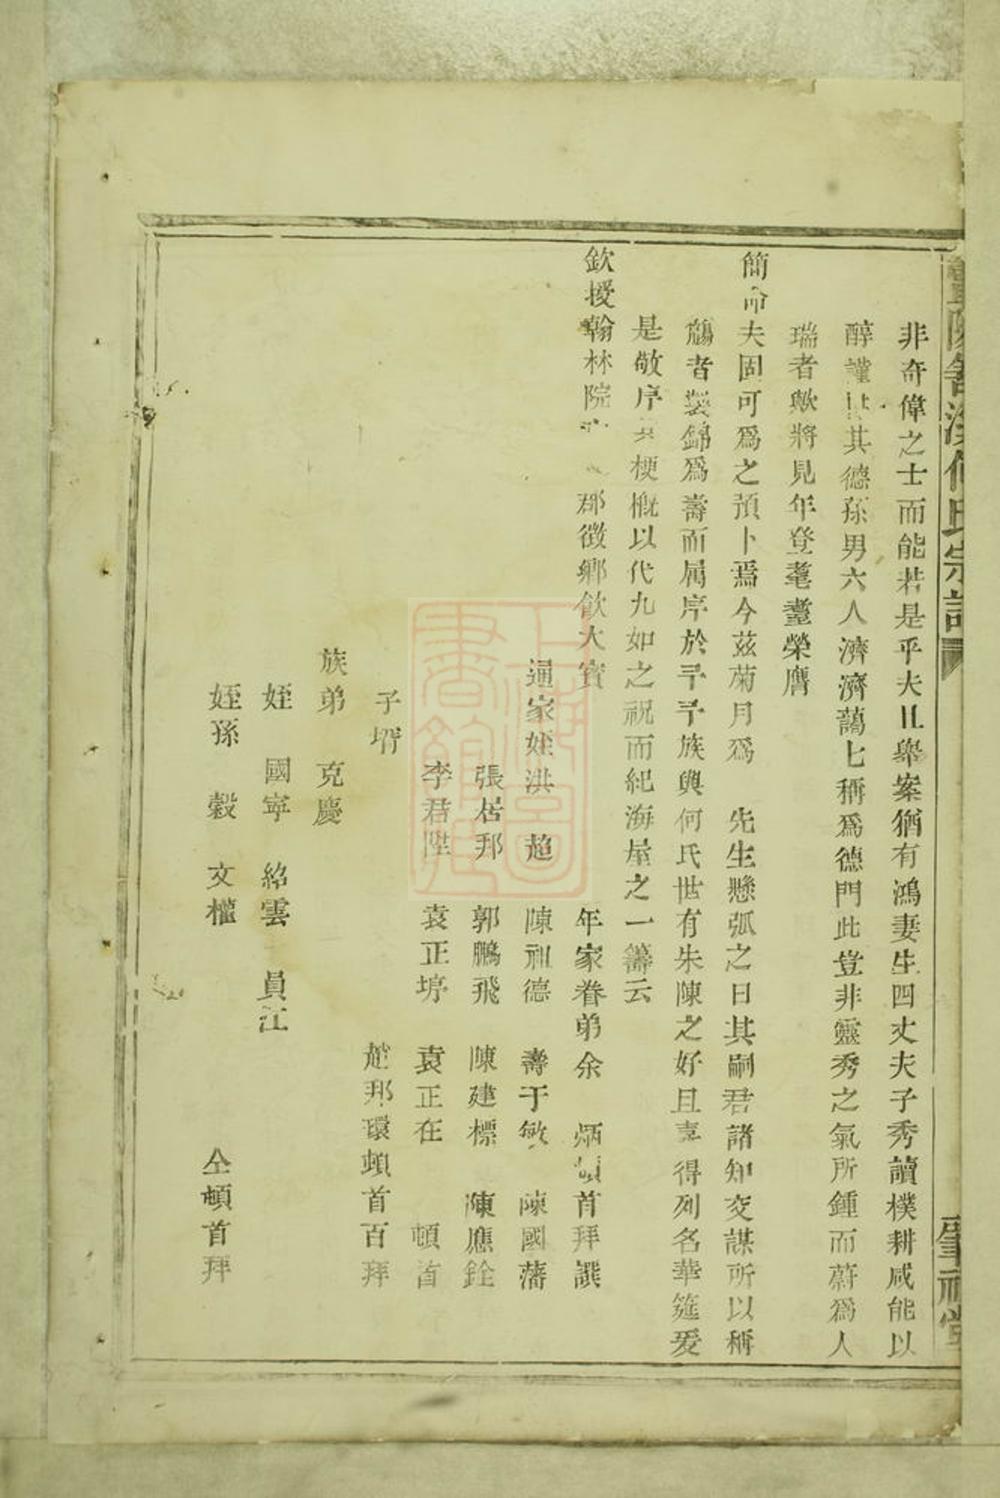 非奇偉之士而能若是乎夫且舉案猶有鴻妻生四丈夫子秀讀樸耕咸能以
醇謹其德孫男六人濟濟藹七稱爲德門此豈非靈秀之氣所鍾而蔚爲人
瑞者歟將見年登耄耋榮膺
簡命夫固可爲之預卜焉今茲菊月爲 先生懸弧之日其嗣君諸知交謀所以稱
觴者製錦爲壽而属序於予予族與何氏世有朱陳之好且喜得列名華筵爰
是敬序其梗概以代九如之祝而紀海屋之一籌云
欽授翰林院 郡徵鄉飲大賓
年家眷弟余 炳 首拜譔
通家姪洪 超 陳祖德 壽于敏 陳國藩
張居邦 郭鵬飛 陳建標 陳應銓
李君陞 袁正垿 袁正在 頓首
子壻 趙邦環頓首百拜
族弟 克慶
姪 國寧 紹雲 員江
姪孫 穀 文權 仝頓首拜
何氏宗譜
肇禋堂
上海圖書館